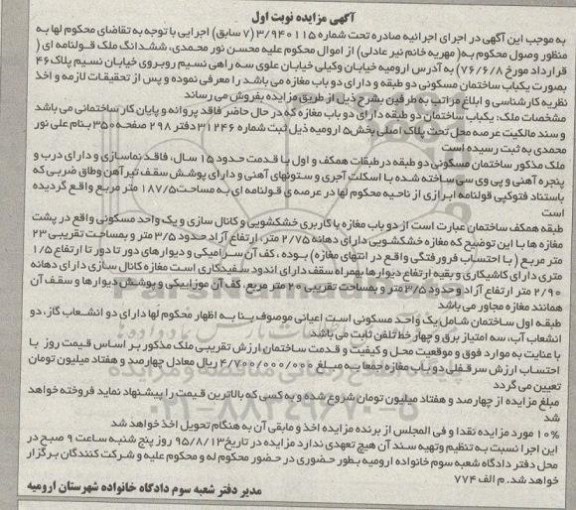 آگهی مزایده نوبت اول
به موجب این آگهی در اجرای اجرائیه صادره تحت شماره ۳/۹۴۰۱۱۵ (۷ سابق) اجرایی با توجه به تقاضای محکوم لها به
منظور وصول محکوم به ( مهریه خانم نیر عادلی) از اموال محکوم علیه محسن نور محمدی، ششدانگ ملک قولنامه ای (
قرارداد مورخ ۷۶/۶/۸) به آدرس ارومیه خیابان وکیلی خیابان علوی سه راهی نسیم روبروی خیابان نسیم پلاک ۴۶
بصورت یکباب ساختمان مسکونی دو طبقه و دارای دو باب مغازه می باشد را معرفی نموده و پس از تحقیقات لازمه و اخذ
نظریه کارشناسی و ابلاغ مراتب به طرفین بشرح ذیل از طریق مزایده بفروش می رساند
مشخصات ملک: یکباب ساختمان دو طبقه دارای دو باب مغازه که در حال حاضر فاقد پروانه و پایان کار ساختمانی می باشد
و سند مالکیت عرصه محل تحت پلاک اصلی بخش ۵ ارومیه ذیل ثبت شماره ۳۱۲۴۶ دفتر ۲۹۸ صفحه ۳۵۰ بنام علی نور
محمدی به ثبت رسیده است
ملک مذکور ساختمان مسکونی دو طبقه در طبقات همکف و اول با قدمت حدود ۱۵ سال، فاقد نماسازی و دارای درب و
پنجره آهنی و پی وی سی ساخته شده با اسکلت آجری و ستونهای آهنی و دارای پوشش سقف تیرآهن وطاق ضربی که
باستناد فتوکپی قولنامه ابرازی از ناحیه محکوم لها در عرصه ی قولنامه ای به مساحت ۱۸۷/۵ متر مربع واقع گردیده
است
طبقه همکف ساختمان عبارت است از دو باب مغازه با کاربری خشکشویی و کانال سازی و یک واحد مسکونی واقع در پشت
مغازه ها با این توضیح که مغازه خشکشویی دارای دهانه ۲/۷۵ متر، ارتفاع آزاد حدود ۳/۵ متر و بمساحت تقریبی ۲۳
متر مربع ( با احتساب فرورفتگی واقع در انتهای مغازه) بوده ، کف آن سرامیکی و دیوارهای دور تا دور تا ارتفاع ۱/۵
متری دارای کاشیکاری و بقیه ارتفاع دیوارها بهمراه سقف دارای اندود سفیدکاری است مغازه کانال سازی دارای دهانه
۲/۹۰ متر ارتفاع آزاد و حدود ۳/۵ متر و بمساحت تقریبی ۲۰ متر مربع، کف آن موزاییکی و پوشش دیوارها و سقف آن
همانند مغازه مجاور می باشد
طبقه اول ساختمان شامل یک واحد مسکونی است اعیانی موصوف بنا به اظهار محکوم لها دارای دو انشعاب گاز، دو
انشعاب آب، سه امتیاز برق و چهار خط تلفن ثابت می باشد
با عنایت به موارد فوق و موقعیت محل و کیفیت و قدمت ساختمان ارزش تقریبی ملک مذکور بر اساس قیمت روز با
احتساب ارزش سرقفلی دو باب مغازه جمعا به مبلغ ۴/۷۰۰/۰۰۰/۰۰۰ ریال معادل چهارصد و هفتاد میلیون تومان
تعیین می گردد
مبلغ مزایده از چهار صد و هفتاد میلیون تومان شروع شده و به کسی که بالاترین قیمت را پیشنهاد نماید فروخته خواهد
شد
۱۰٪ مورد مزایده نقدا و فی المجلس از برنده مزایده اخذ و مابقی آن به هنگام تحویل اخذ خواهد شد
این اجرا نسبت به تنظیم وتهیه سند آن هیچ تعهدی ندارد مزایده در تاریخ ۹۵/۸/۱۳ روز پنج شنبه ساعت ۹ صبح در
محل دفتر دادگاه شعبه سوم خانواده ارومیه بطور حضوری در حضور محکوم له و محکوم علیه و شرکت کنندگان برگزار
خواهد شد. م الف ۷۷۴
مدیر دفتر شعبه سوم دادگاه خانواده شهرستان ارومیه
۰۲۱-۸۸۳۴۹۶۷۰-۵